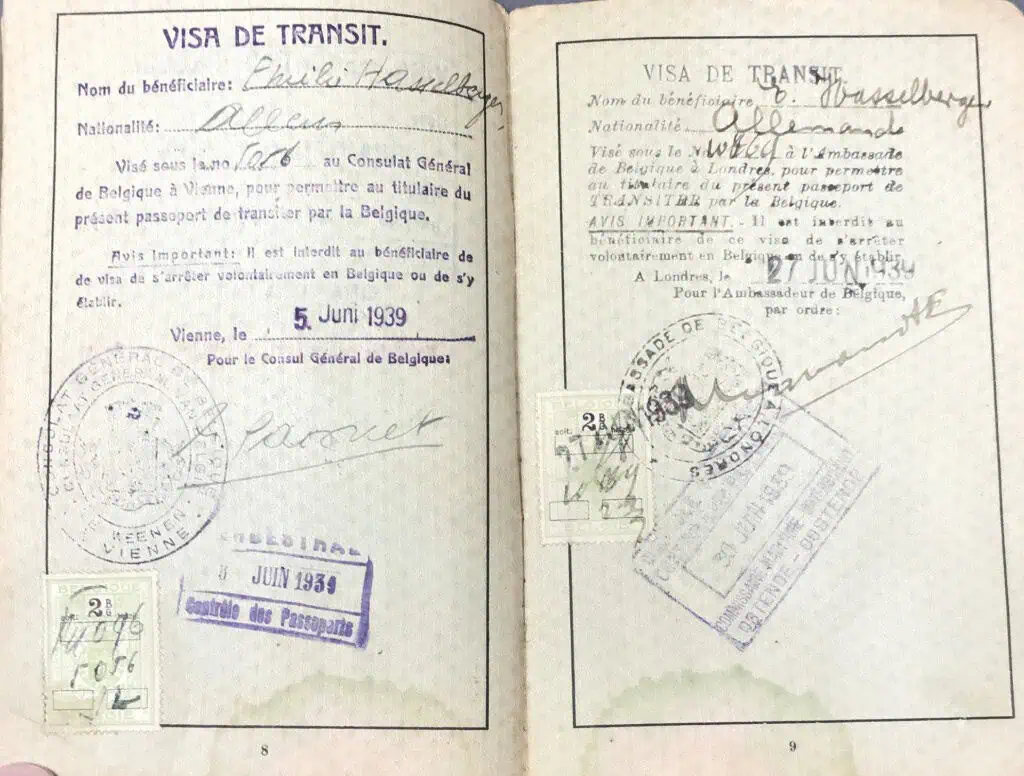 VISA DE TRANSIT.
Nom du bénéficiaire: Emilie Hasselberger
Nationalité: Allem
Visé sous la no 5056 au Consulat Général
de Belgique à Vienne, pour permettre au titulaire du
présent passeport de transiter par la Belgique.
Avis Important: Il est interdit au bénéficiaire de
de visa de s'arrêter volontairement en Belgique ou de s'y
établir.
Vienne, le 5. Juni 1939
Pour le Consul Général de Belgique:
CONSULAT GÉNÉRAL DE BELGIQUE
WEENEN
VIENNE
HERBESTHAL
JUIN 1939
Contrôle des Passeports
BELGIQUE
2
5056
BELGIE
8
VISA DE TRANSIT
Nom du bénéficiaire E. Hasselberger
Nationalité Allemande
Visé sous le No à l'Ambassade
de Belgique à Londres, pour permettre
au titulaire du présent passeport de
TRANSITER par la Belgique.
AVIS IMPORTANT.- Il est interdit au
bénéficiaire de ce visa de s'arrêter
volontairement en Belgique ou de s'y établir
A Londres, le 27 JUN 1939
Pour l'Ambassadeur de Belgique,
par ordre:
AMBASSADE DE BELGIQUE À LONDRES
2
30 JUIN 1939
COMMISSARIAT MARITIME
OSTENDE OOSTENDE
9